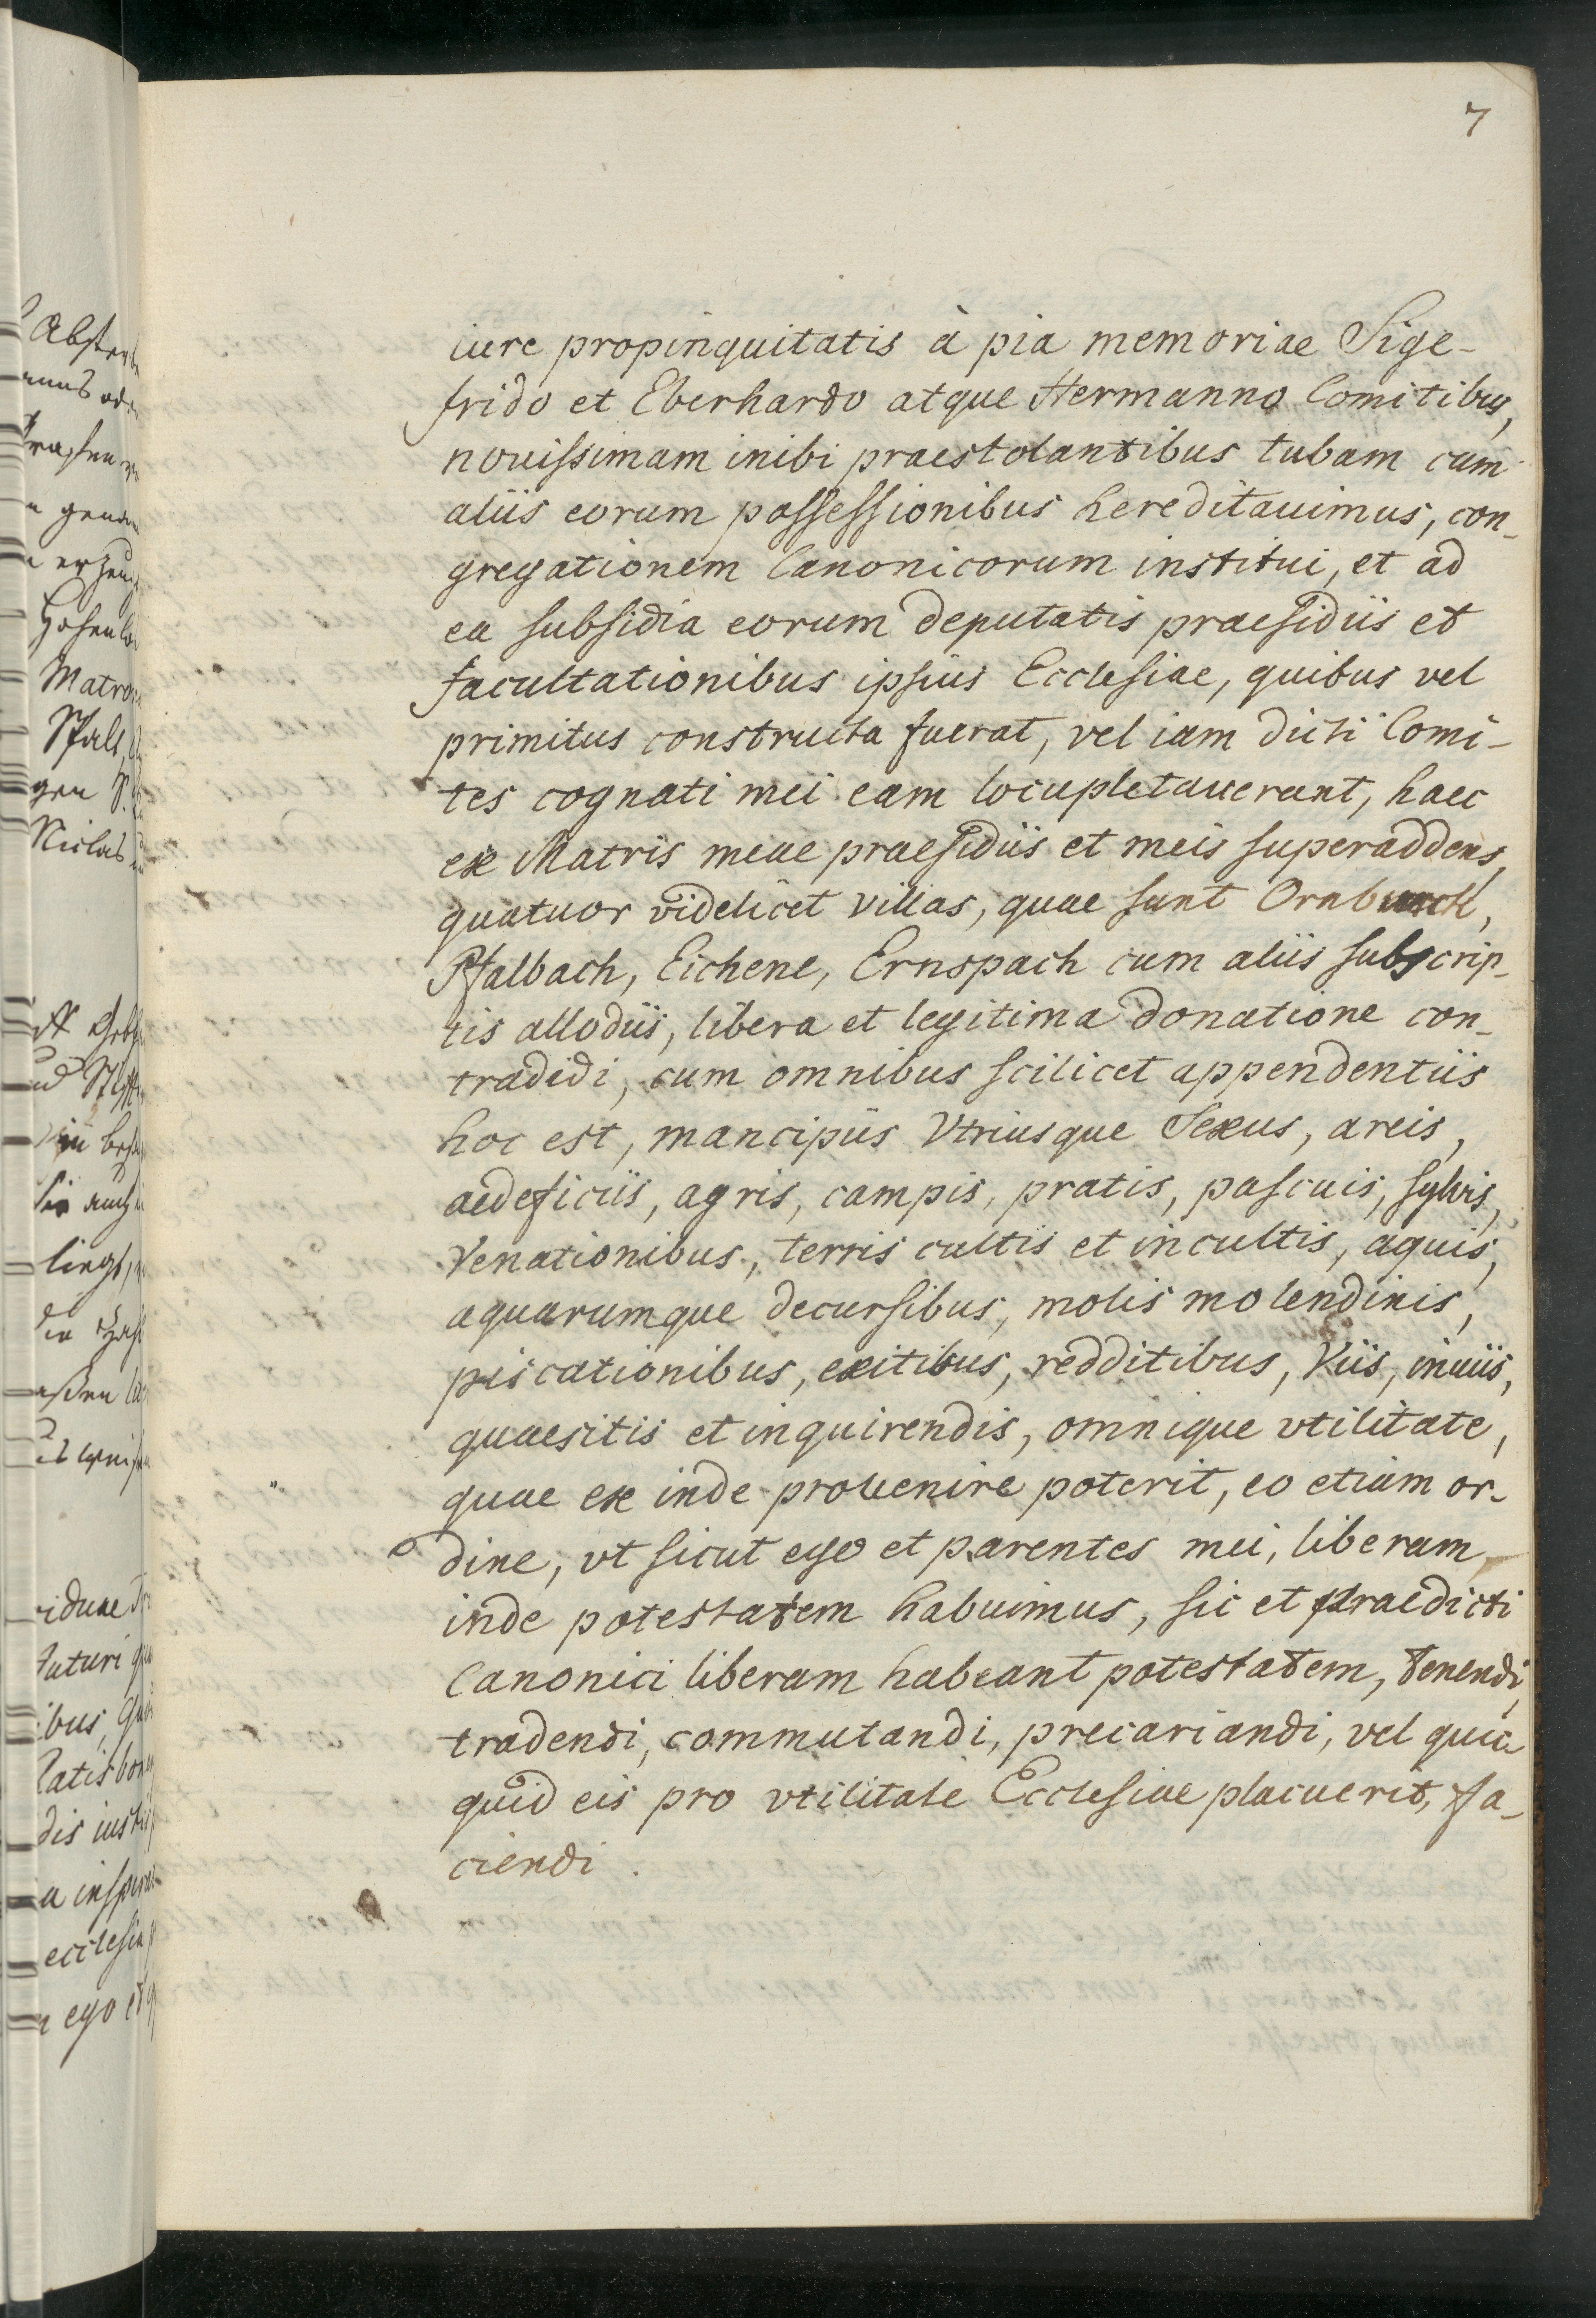 7
iure propinquitatis à pia memoriae Sige-
frido et Eberhardo atque Hermanno Comitibus,
nouissimam inibi praestolantibus tubam cum
aliis eorum possessionibus hereditauimus, con-
gregationem Canonicorum institui, et ad
ea subsidia eorum deputatis praesidiis et
facultationibus ipsius Ecclesiae, quibus vel
primitus constructa fuerat, vel iam dicti Comi-
tes cognati mei eam locupletauerunt, haec
ex Matris meae praesidiis et meis superaddens,
quatuor videlicet villas, quae sunt Ornburch,
Pfalbach, Eichene, Ernspach cum aliis subscrip-
tis allodiis, libera et legitima donatione con-
tradidi, cum omnibus scilicet appendentiis
hoc est, mancipiis Vtriusque Sexus, areis,
aedeficiis, agris, campis, pratis, pascuis, sylvis,
Venationibus, terris cultis et incultis, aquis,
aquarumque decursibus, molis molendinis,
piscationibus, exitibus, redditibus, Viis, inuiis,
quaesitis et inquirendis, omnique vtilitate,
quae ex inde prouenire poterit, eo etiam or-
dine, vt sicut ego et parentes mei, liberam,
inde potestatem habuimus, sic et praedicti
Canonici liberam habeant potestatem, tenendi,
tradendi, commutandi, precariandi, vel quic-
quid eis pro vtilitate Ecclesiae placuerit, fa-
ciendi.